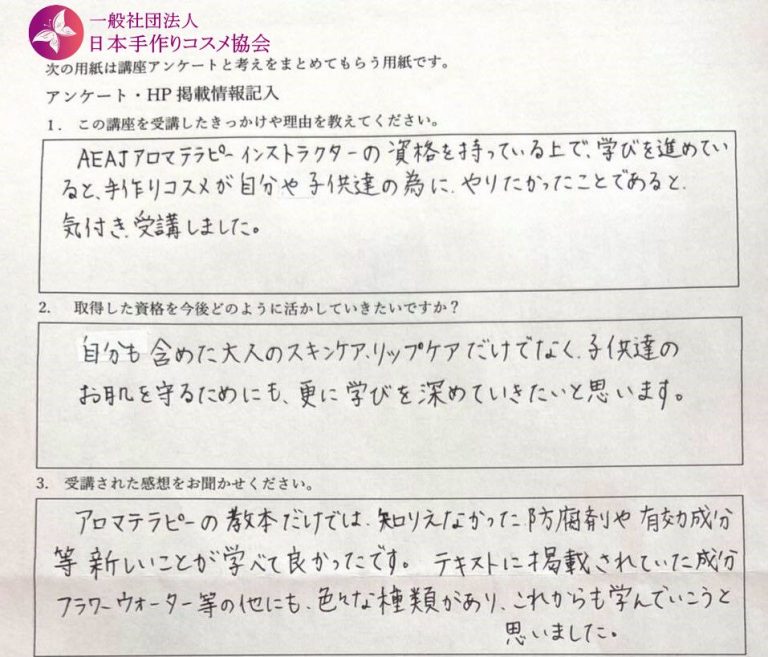 一般社団法人
日本手作りコスメ協会
次の用紙は講座アンケートと考えをまとめてもらう用紙です。
アンケート・HP 掲載情報記入
1. この講座を受講したきっかけや理由を教えてください。
AEAJアロマテラピーインストラクターの資格を持っている上で、学びを進めてい
ると、手作りコスメが自分や子供達の為に、やりたかったことであると、
気付き、受講しました。
2. 取得した資格を今後どのように活かしていきたいですか？
自分も含めた大人のスキンケア、リップケアだけでなく、子供達の
お肌を守るためにも、更に学びを深めていきたいと思います。
3. 受講された感想をお聞かせください。
アロマテラピーの教本だけでは、知りえなかった防腐剤や有効成分
等新しいことが学べて良かったです。テキストに掲載されていた成分
フラワーウォーター等の他にも、色々な種類があり、これからも学んでいこうと
思いました。